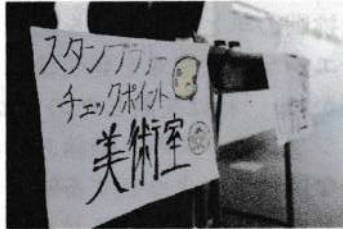 スタンプラリー
チェックポイント
美術室